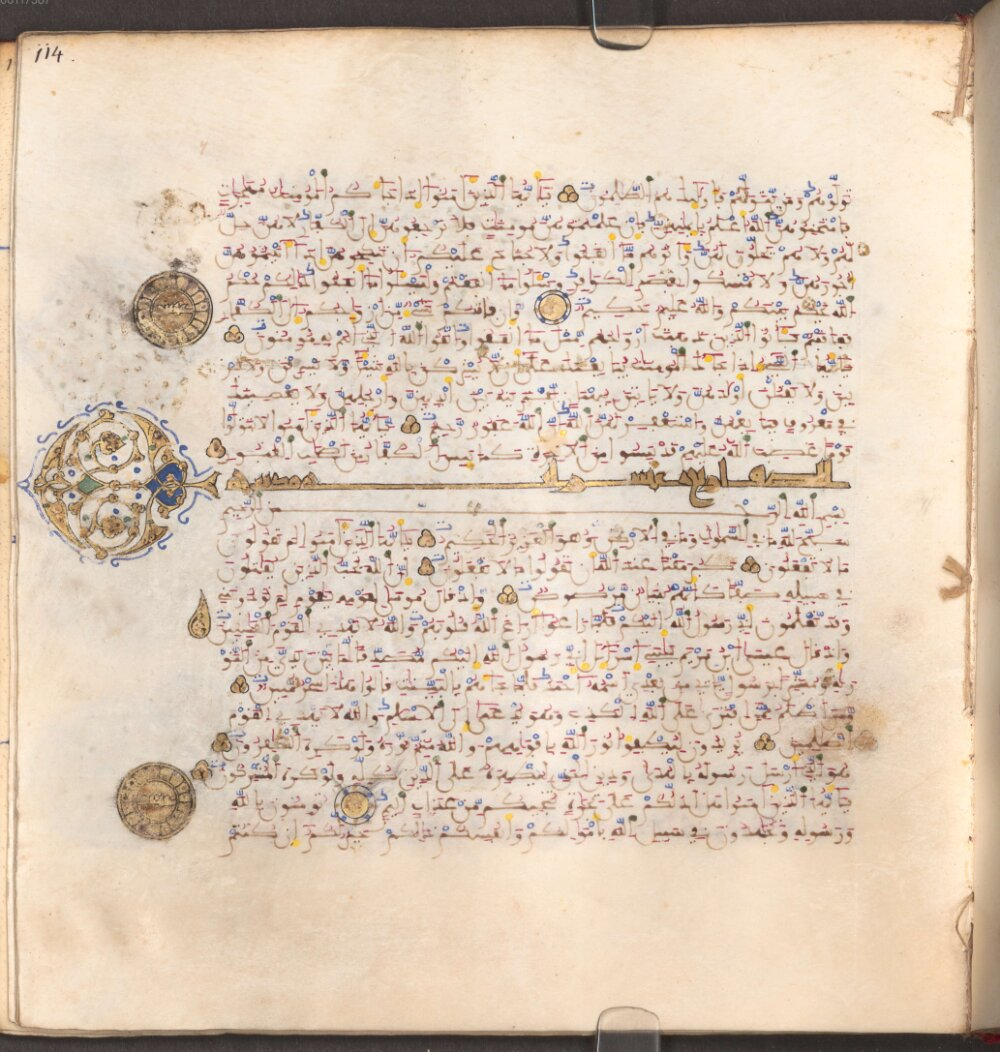 114.
تولوهم ومن يتولهم فأولئك هم الظلمون يأيها الذين ءامنوا إذا جاءكم المؤمنت مهجرت
فامتحنوهن الله أعلم بإيمنهن فإن علمتموهن مؤمنت فلا ترجعوهن إلى الكفار لا هن حل
لهم ولا هم يحلون لهن وءاتوهم ما أنفقوا ولا جناح عليكم أن تنكحوهن إذا ءاتيتموهن
أجورهن ولا تمسكوا بعصم الكوافر وسئلوا ما أنفقتم وليسئلوا ما أنفقوا ذلكم حكم
الله يحكم بينكم والله عليم حكيم وإن فاتكم شيء من أزوجكم إلى الكفار
فعاقبتم فئاتوا الذين ذهبت أزوجهم مثل ما أنفقوا واتقوا الله الذي أنتم به مؤمنون
يأيها النبيء إذا جاءك المؤمنت يبايعنك على أن لا يشركن بالله شيئا ولا يسرقن ولا
يزنين ولا يقتلن أولدهن ولا يأتين ببهتن يفترينه بين أيديهن وأرجلهن ولا يعصينك
في معروف فبايعهن واستغفر لهن الله إن الله غفور رحيم يأيها الذين ءامنوا لا تتولوا
قوما غضب الله عليهم قد يئسوا من الأخرة كما يئس الكفار من أصحب القبور
بسم الله الرحمن الرحيم
سبح لله ما في السموت وما في الأرض وهو العزيز الحكيم يأيها الذين ءامنوا لم تقولون
ما لا تفعلون كبر مقتا عند الله أن تقولوا ما لا تفعلون إن الله يحب الذين يقتلون
في سبيله صفا كأنهم بنين مرصوص وإذ قال موسى لقومه يقوم لم تؤذونني
وقد تعلمون أني رسول الله إليكم فلما زاغوا أزاغ الله قلوبهم والله لا يهدي القوم الفسقين
وإذ قال عيسى ابن مريم يبني إسرءيل إني رسول الله إليكم مصدقا لما بين يدي من التورية
ومبشرا برسول يأتي من بعدي اسمه أحمد فلما جاءهم بالبينت قالوا هذا سحر مبين
ومن أظلم ممن افترى على الله الكذب وهو يدعى إلى الإسلم والله لا يهدي القوم
الظلمين يريدون ليطفئوا نور الله بأفوههم والله متم نوره ولو كره الكفرون
هو الذي أرسل رسوله بالهدى ودين الحق ليظهره على الدين كله ولو كره المشركون
يأيها الذين ءامنوا هل أدلكم على تجرة تنجيكم من عذاب أليم تؤمنون بالله
ورسوله وتجهدون في سبيل الله بأمولكم وأنفسكم ذلكم خير لكم إن كنتم